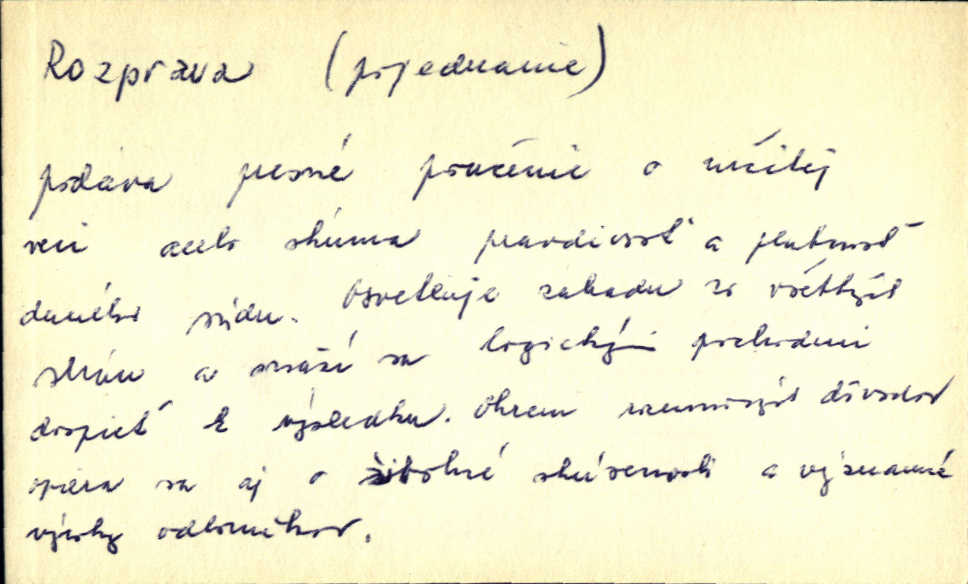 Rozprava (pojednanie)
podáva presné poučenie o určitej
veci alebo skúma pravdivosť a platnosť
daného súdu. Osvetľuje záhadu zo všetkých
strán a snaží sa logickými pochodmi
dospieť k výsledku. Okrem rozumových dôvodov
opiera sa aj o životné skúsenosti a významné
výroky odborníkov.